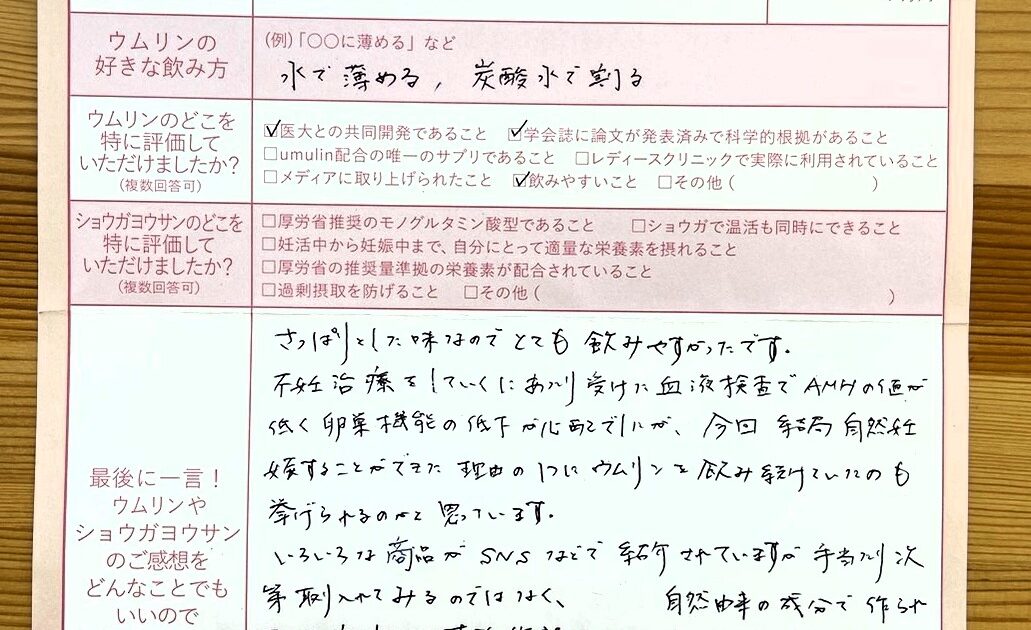 ウムリンの
好きな飲み方
(例)「〇〇に薄める」など
水で薄める, 炭酸水で割る
ウムリンのどこを
特に評価して
いただけましたか?
(複数回答可)
☑医大との共同開発であること ☑学会誌に論文が発表済みで科学的根拠があること
□umulin配合の唯一のサプリであること □レディースクリニックで実際に利用されていること
□メディアに取り上げられたこと ☑飲みやすいこと □その他( )
ショウガヨウサンのどこを
特に評価して
いただけましたか?
(複数回答可)
□厚労省推奨のモノグルタミン酸型であること □ショウガで温活も同時にできること
□妊活中から妊娠中まで、自分にとって適量な栄養素を摂れること
□厚労省の推奨量準拠の栄養素が配合されていること
□過剰摂取を防げること □その他( )
最後に一言!
ウムリンや
ショウガヨウサン
のご感想を
どんなことでも
いいので
さっぱりとした味なのでとても飲みやすかったです。
不妊治療をしていくにあたり受けた血液検査でAMHの値が
低く卵巣機能の低下が心配でしたが、今回結局自然妊
娠することができた理由の1つにウムリンを飲み続けていたのも
挙げられるのかと思っています。
いろいろな商品がSNSなどで紹介されていますが手当たり次
第取り入れてみるのではなく、 自然由来の成分で作られ